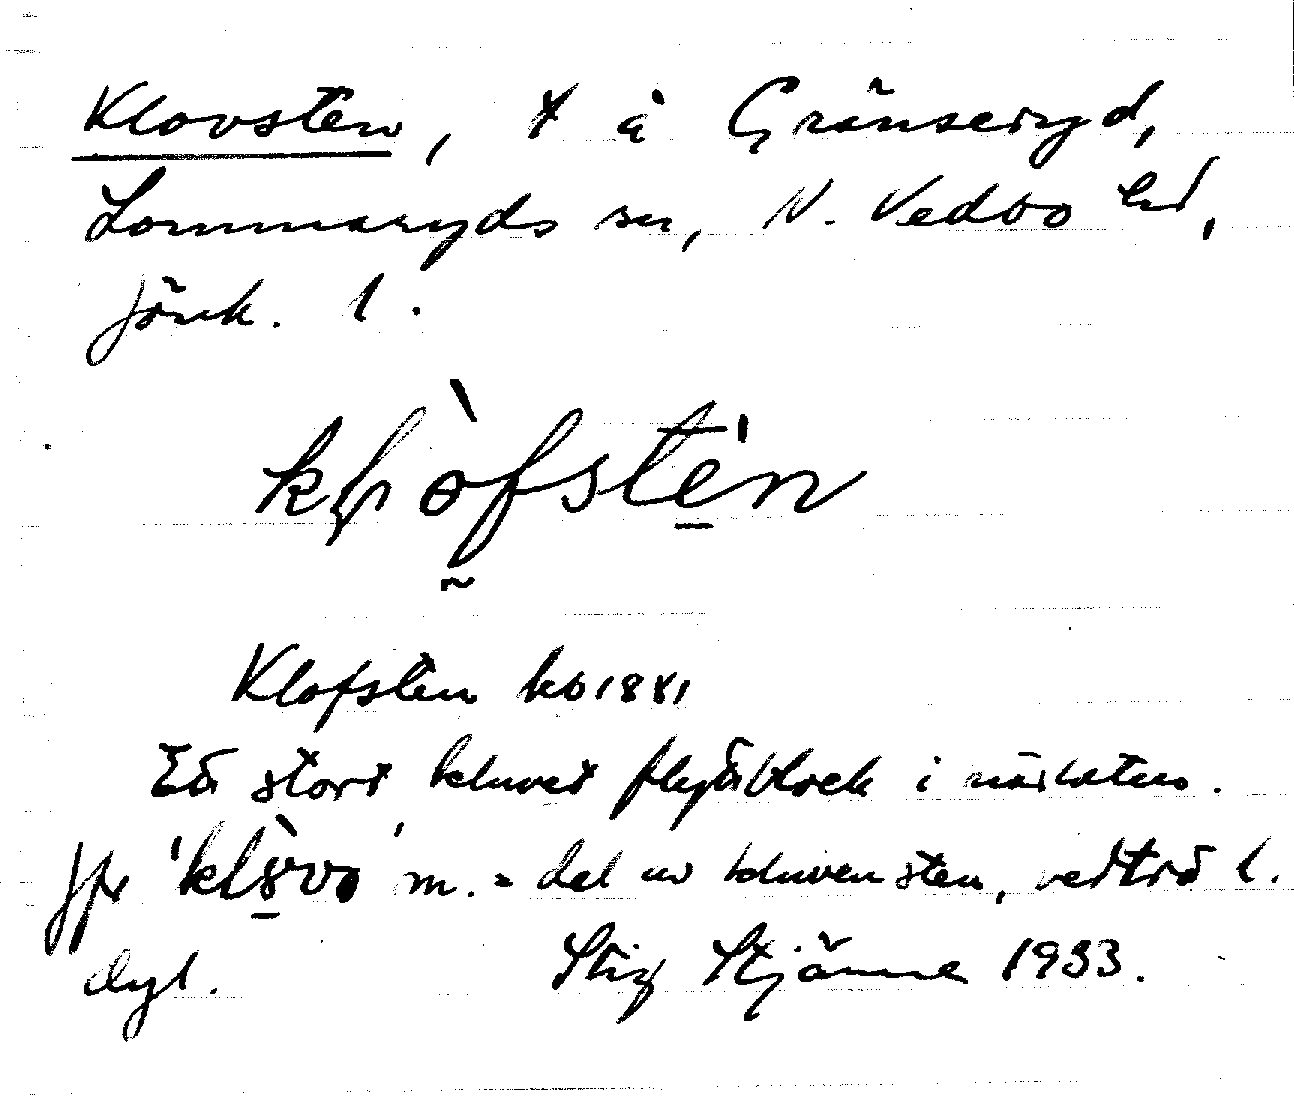 Klovsten, X å Gränseryd,
Lommaryds sn, N. Vedbo hd,
Jönk. l.
klòfste̲ń
Klofsten kb 1881
Ett stort kluvet flyttblock i närheten.
Jfr 'klo̲vo' m. = del av kluven sten, vedträ l.
dyl. Stig Stjärne 1933.